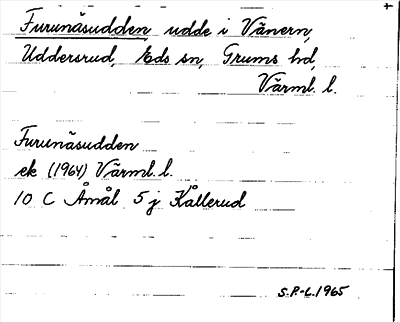 Furunäsudden, udde i Vänern,
Uddersrud, Eds sn, Grums hd,
Värml. l.
Furunäsudden
ek (1964) Värml. l.
10 C Åmål 5 j Kållerud
S.P.-L. 1965